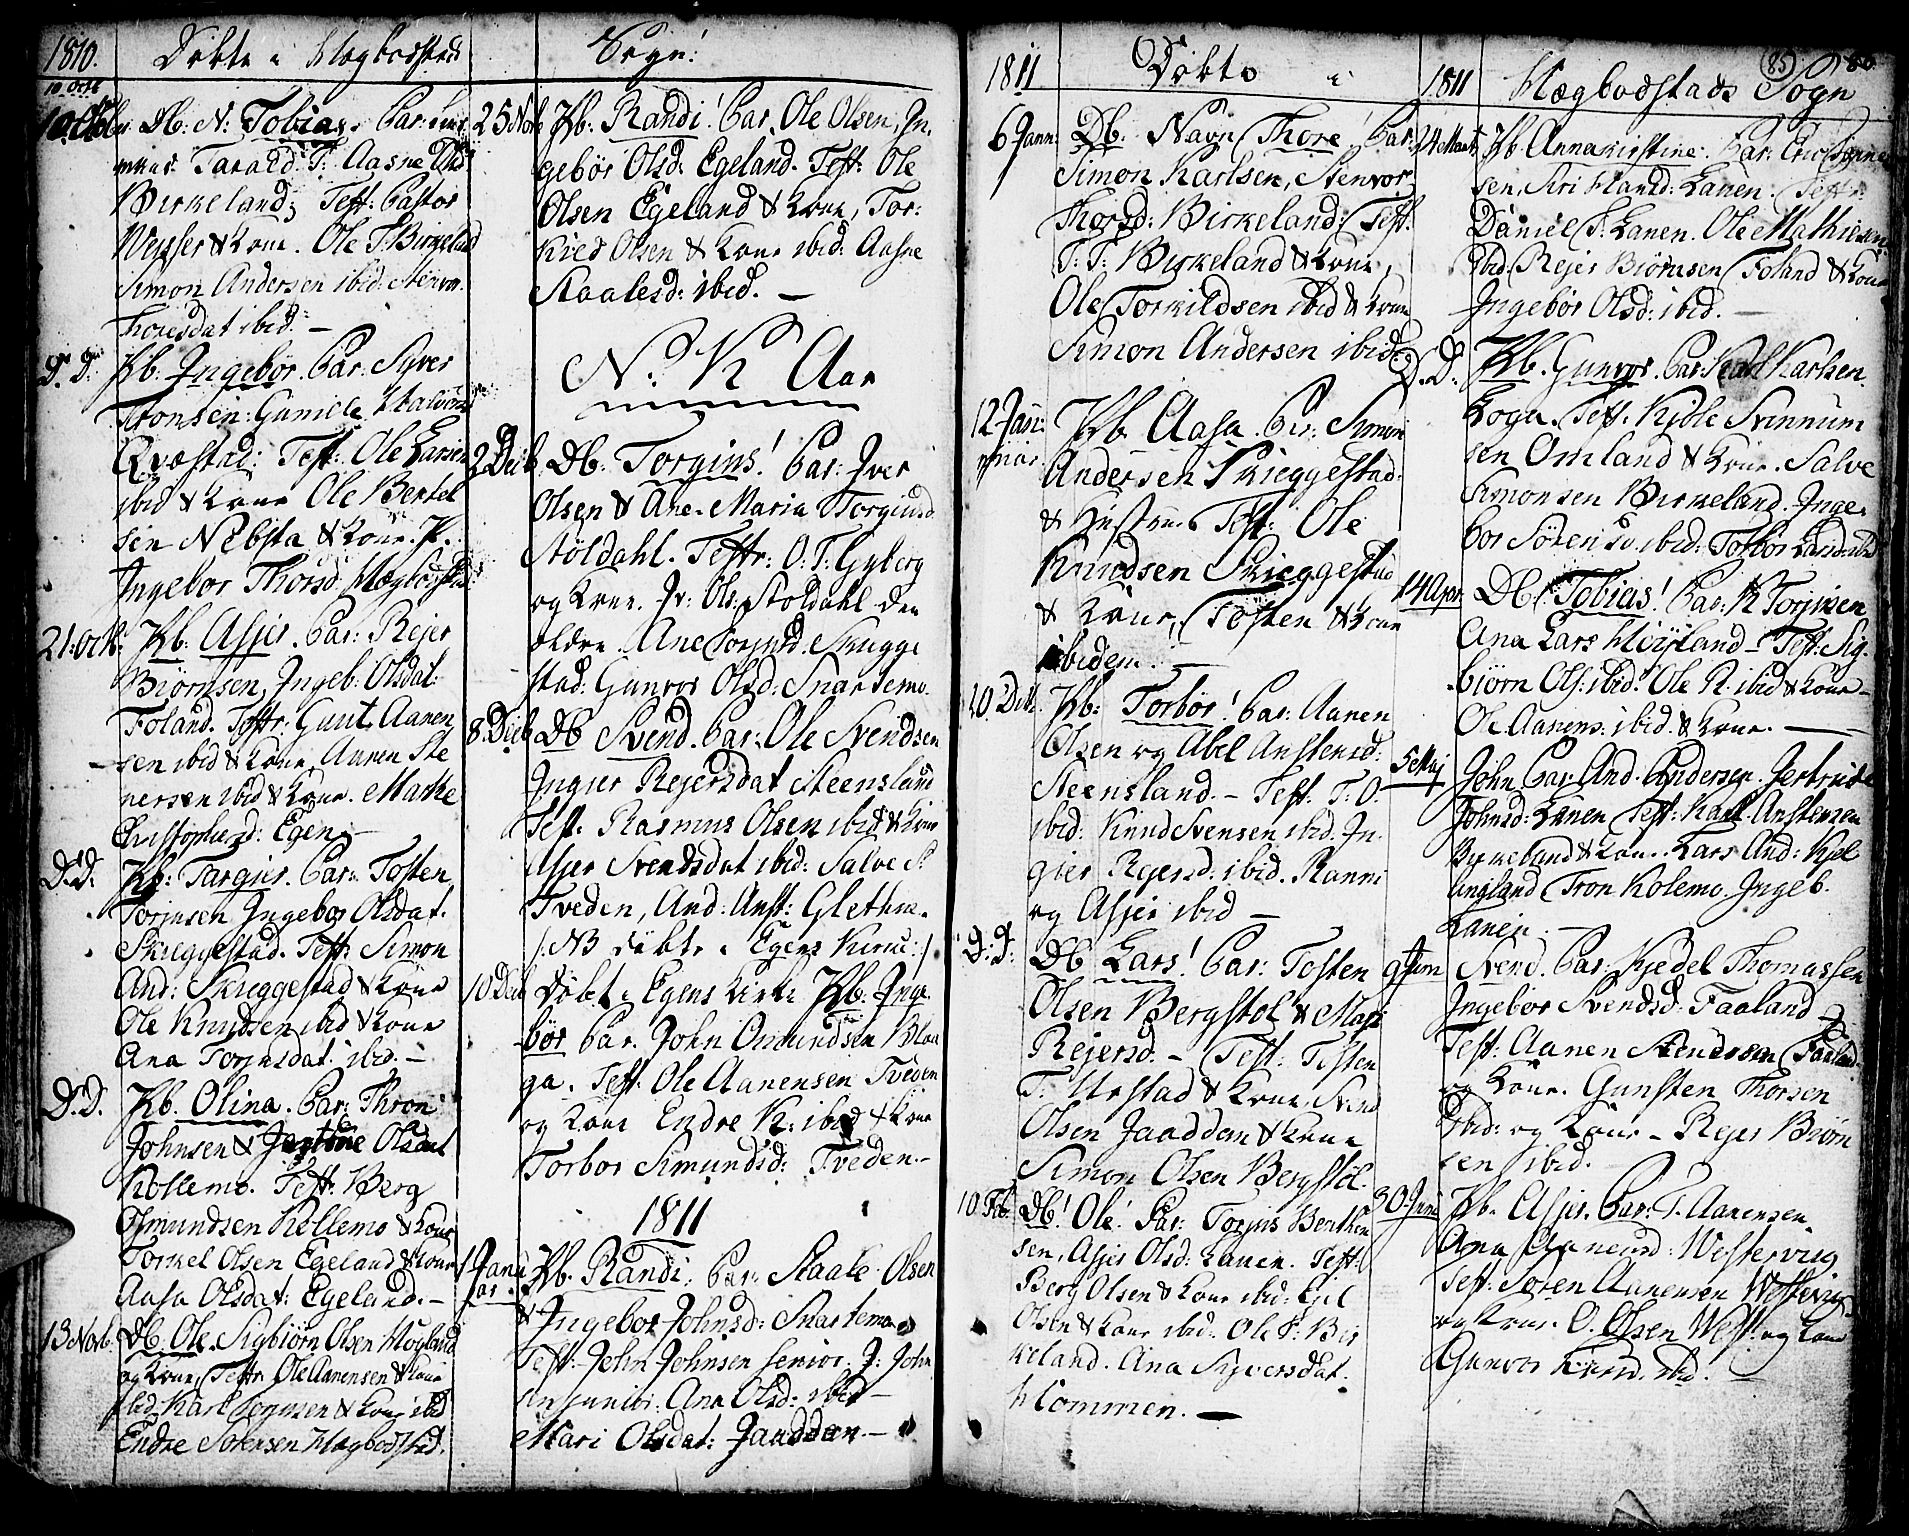 1810. Döbte i Hægbostad Sogn!
10 Octb
10 Octbr Db: N: Tobias. Par:
Tarald T: Aasne
Birkeland; Test: Pastor
Weyser & Kone. Ole T. Birkeland
Simon Andersen ibid: Stenvor
Thoresdat ibid: —
D. D. Pb. Ingebor. Par: Syver
Tronsen: Gunild Halvors
Qvastad: Test: Ole Larsen
ibid & Kone Ole Bertel
sen Nebsta & Kone. P.
Ingebor Thorsd Hægbostad
21: Octb: Pb: Assjer. Par: Rejer
Biørnsen, Ingeb: Olsdat:
Foland. Testr: Gunt Aanen
sen ibid & Kone, Aanen Ste
nersen ibid & Kone. Marthe
Christophersd: Egen —
D. D. Pb: Targier. Par: Tosten
Torjusen Ingebor Olsdat.
Skieggestad. Test: Simon
And: Skieggestad & Kone
Ole Knudsen ibid & Kone
Ana Torjusdat. ibid. —
D. D. Pb. Olina. Par: Thron
Johnsen & Olsdat
Kollemo. Test: Berg
Osmundsen Kollemo & Kone
Torkel Olsen Egeland & Kone
Aasa Olsdat: Egeland. —
13 Novb. Db. Ole. Sigbiørn Olsen Høyland
og Kone, Testr Ole Aanensen & Kone
ibid: Karl Torjusen & Kone ibid
Endre Sørensen Hægbostad.
25 Novb Pb: Randi! Par. Ole Olsen, In.
gebör Olsd: Egeland. Test: Ole
Olsen Egeland & Kone, Tor:
kild Olsen & Kone ibid: Aasne
Staalesd: ibid. —
N. K Aar
2 Decb. Db: Torgius! Par: Iver
Olsen & Ane Maria Torgiusd
Stöldahl. Testr: O. T. Gyberg
og Kone. Jv: Ols: Stoldahl den
ældre Ane Torjusd. Skiegge
stad: Gunvor Olsd: Snartemo.
8. Decb Db Svend. Par. Ole Svendsen
Ingier Rejersdat Steensland
Test. Rasmus Olsen ibid & Kone
Assjer Svendsdat ibid: Salve S.
Tveden, And: Anst: Glethne.
/: NB döbte i Egens Kirke :/
10 Decb Döbt i Egens Kirke Pb: Inge
bör Par. John Osmundsen Blaa
ga. Test. Ole Aanensen Tveden
og Kone Endre K: ibid & Kone
Torbor Simundsd: Tveden. —
1811
1 Janu
ar. Pb. Randi. Par: Staale Olsen
& Ingebor Johnsd: Snartemo
Test: John Johnsen senior. J: John
sen junior. Ana Olsd: ibid —
Mari Olsdat: Jaaddan. —
1811 Döbte i
6 Janr. Db. Navn Thore Par:
Simon Karlsen, Stenvor
Thorsd: Birkeland: Test.
T: T: Birkeland & Kone,
Ole Torkildsen ibid & Kone
Simon Andersen ibid
12 Jan:
nuar Pb. Aasa. Par: Simon
Andersen Skieggestad.
& Hustrue Test: Ole
Knudsen Skieggestad
& Kone, Tosten & Kone
ibidem. —
10 Dito Pb: Torbör! Par: Aanen
Olsen og Abel Anstensd:
Steensland. — Test. T: O.
ibid: Knud Svensen ibid. In.
gier Rejersd: ibid. Ranni
og Assjer ibid —
D: D: Db Lars! Par: Tosten
Olsen Bergstol & Mari
Rejersd — Test: Tosten
T: Urstad & Kone, Svend
Olsen Jaaddan & Kone
Simon Olsen Bergstöl.
10. Feb. Db! Ole! Par: Torjus Benthen
sen, Assjer Olsd: Lanen. Test:
Berg Olsen & Kone ibid: Ejel
Olsen & Kone ibid: Ole P: Bir
keland. Ana Syversdat.
Hommen. —
1811 Hægbostads Sogn
(85) 86
24 Mart. Pb. Anna Kirstine. Par: Eric
sen, Siri Hansd: Lanen. Testr:
Daniel T. Lanen. Ole Mathiesen
ibid. Rejer Biörnsen Foland & Kone
Ingebör Olsd: ibid. —
D. D: Pb. Gunvor. Par: Karl Karlsen.
Loga. Test. Kydle Svennum
sen Omland & Kone. Salve
Simonsen Birkeland. Inge
bor Sören ibid: Torbör Larsd: ibid
14 Apr. Db: Tobias! Par: K Torjusen
Ana Lars Höyland — Test: Sig.
biørn Ols: ibid. Ole R. ibid & Kone —
Ole Aanens: ibid. & Kone. —
5 Maj John Par: And: Andersen. Jertrude
Johnsd: Lanen Test: Karl Anstensen
Birkeland & Kone. Lars And: Kjel
lingland Tron Kolemo Ingeb.
Lanen. —
9 Jun Svend. Par: Kjedel Thomassen
Ingebor Svendsd: Faaland —
Test: Aanen Stenersen Faaland
og Kone. Gunsten Thorsen
ibid: og Kone — Rejer Biön
sen ibid.
30. Juni Pb. Assjer. Par: T. Aanensen.
Ana Aanensd: Westervig
Test: Sören Aanensen Westervig
og Kone. O. Olsen West: og Kone
Gunvor ibid. —